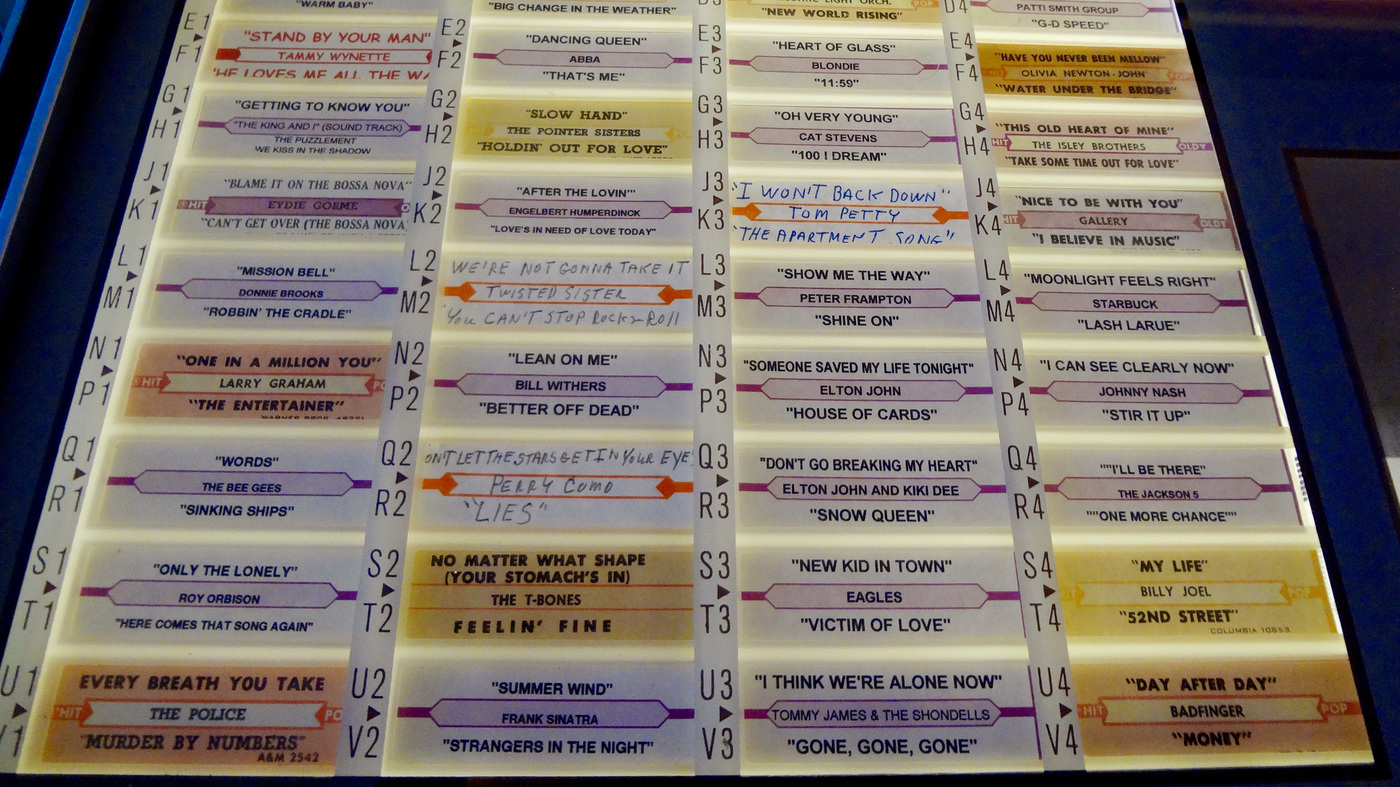 "WARM BABY"
E1
F1
"STAND BY YOUR MAN"
TAMMY WYNETTE
"HE LOVES ME ALL THE WA
G1
H1
"GETTING TO KNOW YOU"
"THE KING AND I" (SOUND TRACK)
THE PUZZLEMENT
WE KISS IN THE SHADOW
J1
K1
"BLAME IT ON THE BOSSA NOVA"
HIT EYDIE GORME
"CAN'T GET OVER (THE BOSSA NOVA
L1
M1
"MISSION BELL"
DONNIE BROOKS
"ROBBIN' THE CRADLE"
N1
P1
"ONE IN A MILLION YOU"
HIT LARRY GRAHAM PO
"THE ENTERTAINER"
Q1
R1
"WORDS"
THE BEE GEES
"SINKING SHIPS"
S1
T1
"ONLY THE LONELY"
ROY ORBISON
"HERE COMES THAT SONG AGAIN"
U1
V1
EVERY BREATH YOU TAKE
HIT THE POLICE PO
"MURDER BY NUMBERS"
A&M 2542
"BIG CHANGE IN THE WEATHER"
E2
F2
"DANCING QUEEN"
ABBA
"THAT'S ME"
G2
H2
"SLOW HAND"
THE POINTER SISTERS
"HOLDIN' OUT FOR LOVE"
J2
K2
"AFTER THE LOVIN'"
ENGELBERT HUMPERDINCK
"LOVE'S IN NEED OF LOVE TODAY"
L2
M2
WE'RE NOT GONNA TAKE IT
TWISTED SISTER
"YOU CAN'T STOP ROCK-N-ROLL
N2
P2
"LEAN ON ME"
BILL WITHERS
"BETTER OFF DEAD"
Q2
R2
ON'T LET THE STARS GET IN YOUR EYE
PERRY COMO
"LIES"
S2
T2
NO MATTER WHAT SHAPE
(YOUR STOMACH'S IN)
THE T-BONES
FEELIN' FINE
U2
V2
"SUMMER WIND"
FRANK SINATRA
"STRANGERS IN THE NIGHT"
LIGHT ORCH. POP
"NEW WORLD RISING"
E3
F3
"HEART OF GLASS"
BLONDIE
"11:59"
G3
H3
"OH VERY YOUNG"
CAT STEVENS
"100 I DREAM"
J3
K3
"I WON'T BACK DOWN"
TOM PETTY
"THE APARTMENT SONG"
L3
M3
"SHOW ME THE WAY"
PETER FRAMPTON
"SHINE ON"
N3
P3
"SOMEONE SAVED MY LIFE TONIGHT"
ELTON JOHN
"HOUSE OF CARDS"
Q3
R3
"DON'T GO BREAKING MY HEART"
ELTON JOHN AND KIKI DEE
"SNOW QUEEN"
S3
T3
"NEW KID IN TOWN"
EAGLES
"VICTIM OF LOVE"
U3
V3
"I THINK WE'RE ALONE NOW"
TOMMY JAMES & THE SHONDELLS
"GONE, GONE, GONE"
D4
PATTI SMITH GROUP
"G-D SPEED"
E4
F4
"HAVE YOU NEVER BEEN MELLOW"
HIT OLIVIA NEWTON-JOHN POP
"WATER UNDER THE BRIDGE"
G4
H4
"THIS OLD HEART OF MINE"
HIT THE ISLEY BROTHERS OLDY
"TAKE SOME TIME OUT FOR LOVE"
J4
K4
"NICE TO BE WITH YOU"
HIT GALLERY OLDY
"I BELIEVE IN MUSIC"
L4
M4
"MOONLIGHT FEELS RIGHT"
STARBUCK
"LASH LARUE"
N4
P4
"I CAN SEE CLEARLY NOW"
JOHNNY NASH
"STIR IT UP"
Q4
R4
""I'LL BE THERE"
THE JACKSON 5
""ONE MORE CHANCE""
S4
T4
"MY LIFE"
HIT BILLY JOEL POP
"52ND STREET"
COLUMBIA 10853
U4
V4
"DAY AFTER DAY"
HIT BADFINGER POP
"MONEY"